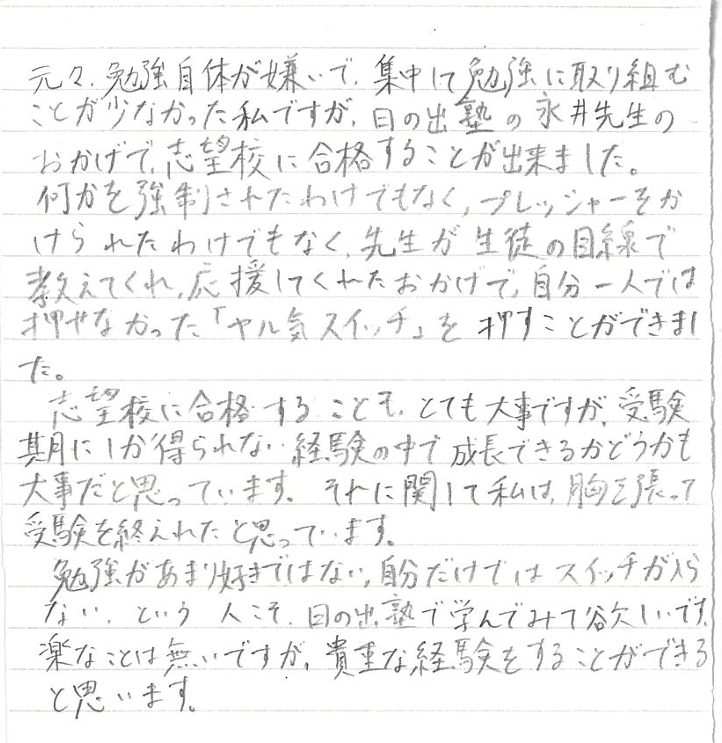 元々、勉強自体が嫌いで、集中して勉強に取り組む
ことが少なかった私ですが、日の出塾の永井先生の
おかげで、志望校に合格することが出来ました。
何かを強制されたわけでもなく、プレッシャーをか
けられたわけでもなく、先生が生徒の目線で
教えてくれ、応援してくれたおかげで、自分一人では
押せなかった「ヤル気スイッチ」を押すことができまし
た。
志望校に合格することも、とても大事ですが、受験
期にしか得られない経験の中で成長できるかどうかも
大事だと思っています。それに関して私は、胸を張って
受験を終えれたと思っています。
勉強があまり好きではない、自分だけではスイッチが入ら
ない、という人こそ、日の出塾で学んでみて欲しいです。
楽なことは無いですが、貴重な経験をすることができる
と思います。